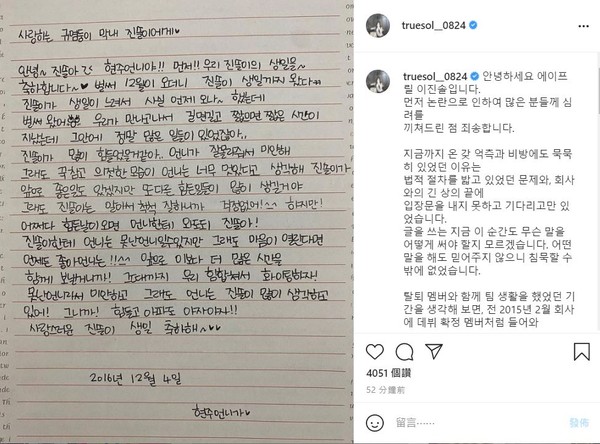 사랑하는 귀염둥이 막내 진쏠이에게♥
안녕~ 진쏠아 현주언니야!! 먼저!! 우리 진쏠이의 생일을~
축하합니다~♥ 벌써 12월이 오더니 진쏠이 생일까지 왔다
진쏠이가 생일이 느려서 사실 언제 와나~ 했는데
벌써 왔어 우리가 만난거나서 길면길고 짧으면 짧은 시간이
지났는데 그안에 정말 많은 일들이 있었잖아..
진쏠이가 많이 힘들었을거같아.. 언니가 잘몰라줘서 미안해
그래도 꿋꿋하고 의젓한 모습이 언니는 너무 멋있다고 생각해 진쏠아
앞으로 좋은일도 있겠지만 또다른 힘든일들이 많이 생길거야
그래도 진쏠이는 알아서 척척 잘하니까 걱정없어!! 하지만!
어쩌다 힘든날이오면 언니한테 와도되 진쏠아!
진쏠이한테 언니는 못난언니일수있지만 그래도 마음이 열린다면
언제든 좋아언니는!!^^ 앞으로 이보다 더 많은 시간을
함께 보낼거니까! 그때까지 우리 힘합쳐서 화이팅하자!
못난언니라서 미안하고 그래도 언니는 진쏠이 많이 생각하고
있어! 그니까! 힘들고 아파도 야자야자!!
사랑스러운 진쏠이 생일 축하해~♥♥
2016년 12월 4일
현주언니가♥
truesol__0824
truesol__0824 안녕하세요 에이프
릴 이진솔입니다.
먼저 논란으로 인하여 많은 분들께 심
려를
끼쳐드린 점 죄송합니다.
지금까지 온 갖 억측과 비방에도 묵묵
히 있었던 이유는
법적 절차를 밟고 있었던 문제와, 회사
와의 긴 상의 끝에
입장문을 내지 못하고 기다리고만 있
었습니다.
글을 쓰는 지금 이 순간도 무슨 말을
어떻게 써야 할지 모르겠습니다. 어떤
말을 해도 믿어주지 않으니 침묵할 수
밖에 없었습니다.
탈퇴 멤버와 함께 팀 생활을 했었던 기
간을 생각해 보면, 전 2015년 2월 회사
에 데뷔 확정 멤버처럼 들어와
4051 個讚
52 分鐘前
留言⋯⋯
發佈